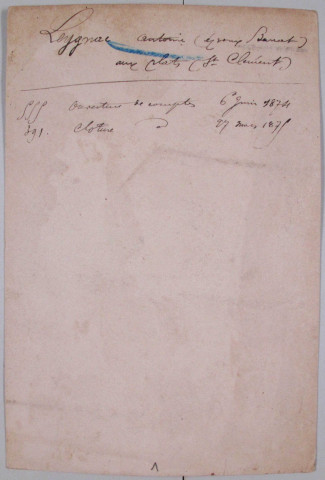 Leygnac antoine (époux Bannat)
aux plats (St Clément)
555 Ouverture de comptes 6 Juin 1874
791. Cloture d° 27 mars 1875